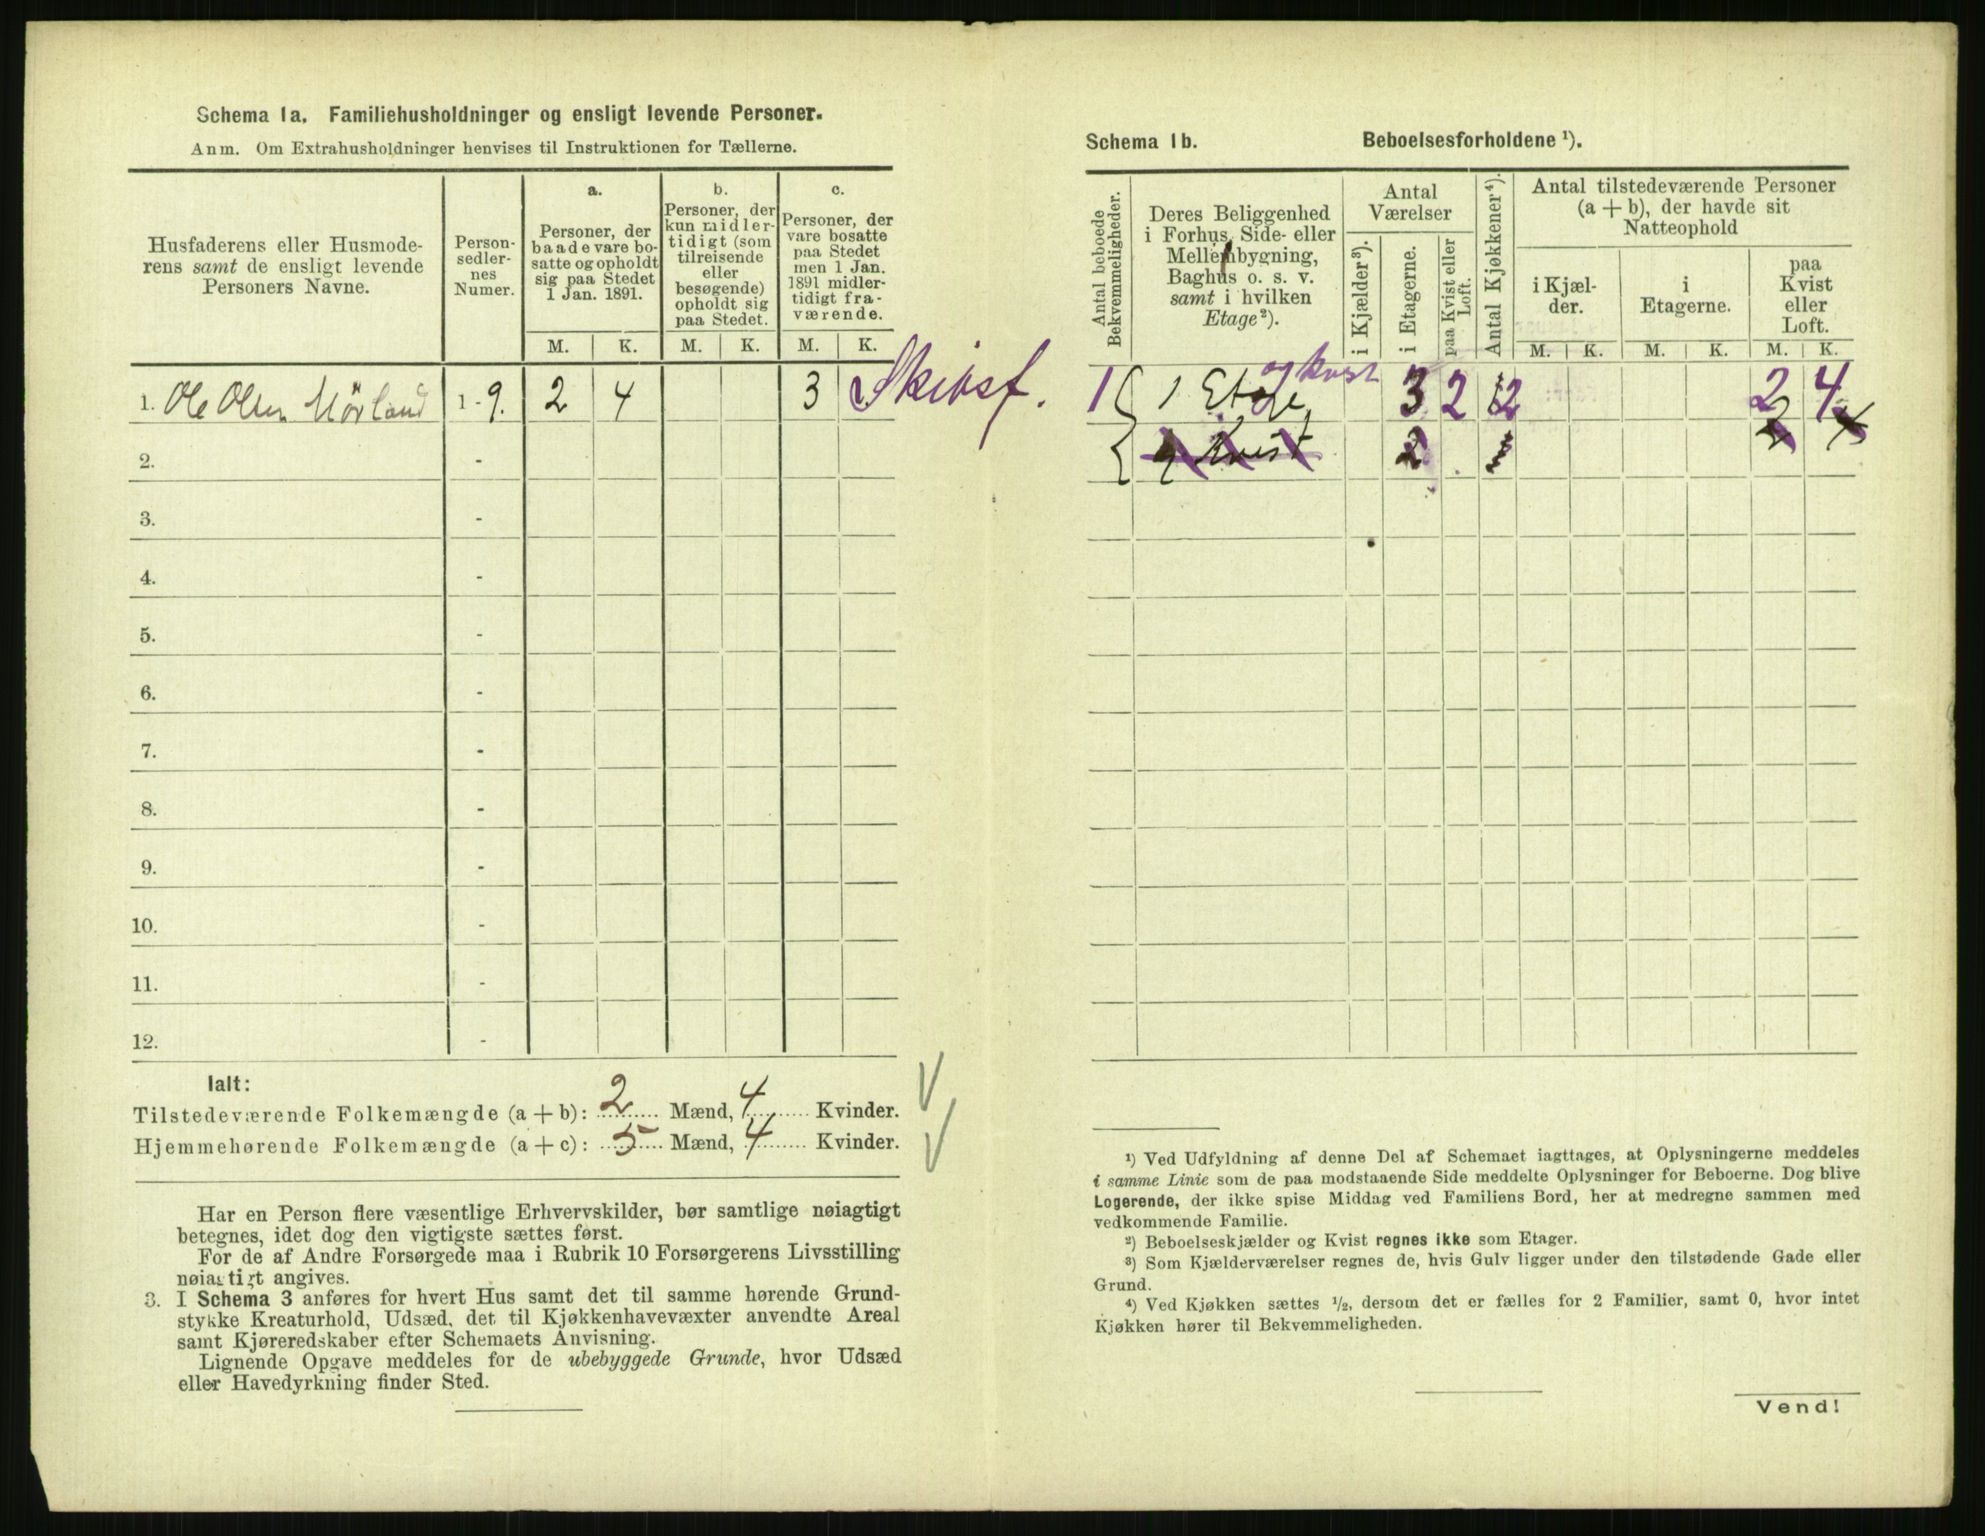 Schema 1a. Familiehusholdninger og ensligt levende Personer.
Anm. Om Extrahusholdninger henvises til Instruktionen for Tællerne.
Husfaderens eller Husmode-
rens samt de ensligt levende
Personers Navne.
Person-
sedler-
nes
Numer.
a.
Personer, der
baade vare bo-
satte og opholdt
sig paa Stedet
1 Jan. 1891.
b.
Personer, der
kun midler-
tidigt (som
tilreisende
eller
besøgende)
opholdt sig
paa Stedet.
c.
Personer, der
vare bosatte
paa Stedet
men 1 Jan.
1891 midler-
tidigt fra-
værende.
M. K. M. K. M. K.
1. Ole Olsen Mörland 1 - 9. 2 4 3 Skibsf.
2. -
3. -
4. -
5. -
6. -
7. -
8. -
9. -
10. -
11. -
12. -
Ialt:
Tilstedeværende Folkemængde (a + b): 2 Mænd, 4 Kvinder.
Hjemmehørende Folkemængde (a + c): 5 Mænd, 4 Kvinder.
Har en Person flere væsentlige Erhvervskilder, bør samtlige nøiagtigt
betegnes, idet dog den vigtigste sættes først.
For de af Andre Forsørgede maa i Rubrik 10 Forsørgerens Livsstilling
nøiagtigt angives.
3. I Schema 3 anføres for hvert Hus samt det til samme hørende Grund-
stykke Kreaturhold, Udsæd, det til Kjøkkenhavevæxter anvendte Areal
samt Kjøreredskaber efter Schemaets Anvisning.
Lignende Opgave meddeles for de ubebyggede Grunde, hvor Udsæd
eller Havedyrkning finder Sted.
Schema 1b. Beboelsesforholdene ¹).
Antal beboede
Bekvemmeligheder.
Deres Beliggenhed
i Forhus, Side- eller
Mellembygning,
Baghus o. s. v.
samt i hvilken
Etage²).
Antal
Værelser
i Kjælder³).
i Etagerne.
paa Kvist eller
Loft.
Antal Kjøkkener⁴).
Antal tilstedeværende Personer
(a + b), der havde sit
Natteophold
i Kjæl-
der.
i
Etagerne.
paa
Kvist
eller
Loft.
M. K. M. K. M. K.
og kvist
1 1 Etage 3 2 2 2 4
Kvist 2
¹) Ved Udfyldning af denne Del af Schemaet iagttages, at Oplysningerne meddeles
i samme Linie som de paa modstaaende Side meddelte Oplysninger for Beboerne. Dog blive
Logerende, der ikke spise Middag ved Familiens Bord, her at medregne sammen med
vedkommende Familie.
²) Beboelseskjælder og Kvist regnes ikke som Etager.
³) Som Kjælderværelser regnes de, hvis Gulv ligger under den tilstødende Gade eller
Grund.
⁴) Ved Kjøkken sættes ½, dersom det er fælles for 2 Familier, samt 0, hvor intet
Kjøkken hører til Bekvemmeligheden.
Vend!